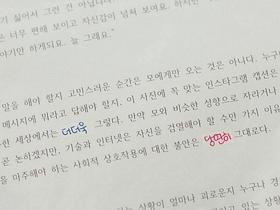 기 싫어서 그런 건 아닙니다.
은 너무 편해 보이고 자신감이 넘쳐 보여요. 하지만
야기만 하게되요. 늘 그래요."
말을 해야 할지 고민스러운 순간은 모에게만 오는 것은 아니다. 누구
메시지에 뭐라고 답해야 할지. 이 사진에 꼭 맞는 인스타그램 캡션은
한 세상에서는 더더욱 그렇다. 만약 모와 비슷한 성향으로 자라거나
곧 논하겠지만, 기술과 인터넷은 자신을 검열해야 할 수만 가지 이유
을 마주해야 하는 사회적 상호작용에 대한 불안은 당연히 그대로다.
는 상황이 얼마나 괴로운지 누구나 경